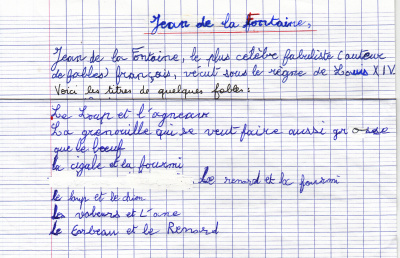 Jean de la Fontaine,
Jean de la Fontaine, le plus célèbre fabuliste (auteur
de fables) français, vécut sous le règne de Louis XIV.
Voici les titres de quelques fables:
Le Loup et l'agneau
La grenouille qui se veut faire aussi grosse
que le boeuf
la cigale et la fourmi
Le renard et la fourmi
le loup et le chien
les voleurs et L'ane
le Corbeau et le Renard